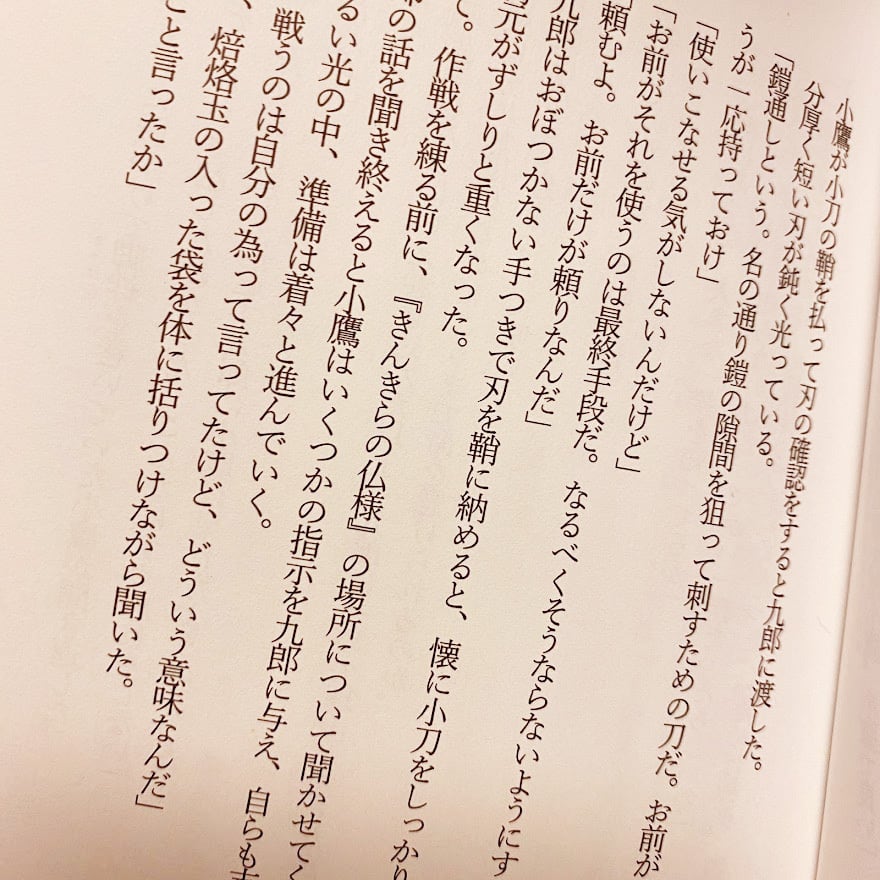 小鷹が小刀の鞘を払って刃の確認をすると九郎に渡した。
分厚く短い刃が鈍く光っている。
「鎧通しという。名の通り鎧の隙間を狙って刺すための刀だ。お前が
うが一応持っておけ」
「使いこなせる気がしないんだけど」
「お前がそれを使うのは最終手段だ。なるべくそうならないようにす
頼むよ。お前だけが頼りなんだ」
九郎はおぼつかない手つきで刃を鞘に納めると、懐に小刀をしっかり
元がずしりと重くなった。
て。作戦を練る前に、『きんきらの仏様』の場所について聞かせてく
の話を聞き終えると小鷹はいくつかの指示を九郎に与え、自らも
るい光の中、準備は着々と進んでいく。
戦うのは自分の為って言ってたけど、どういう意味なんだ」
、焙烙玉の入った袋を体に括りつけながら聞いた。
こと言ったか」